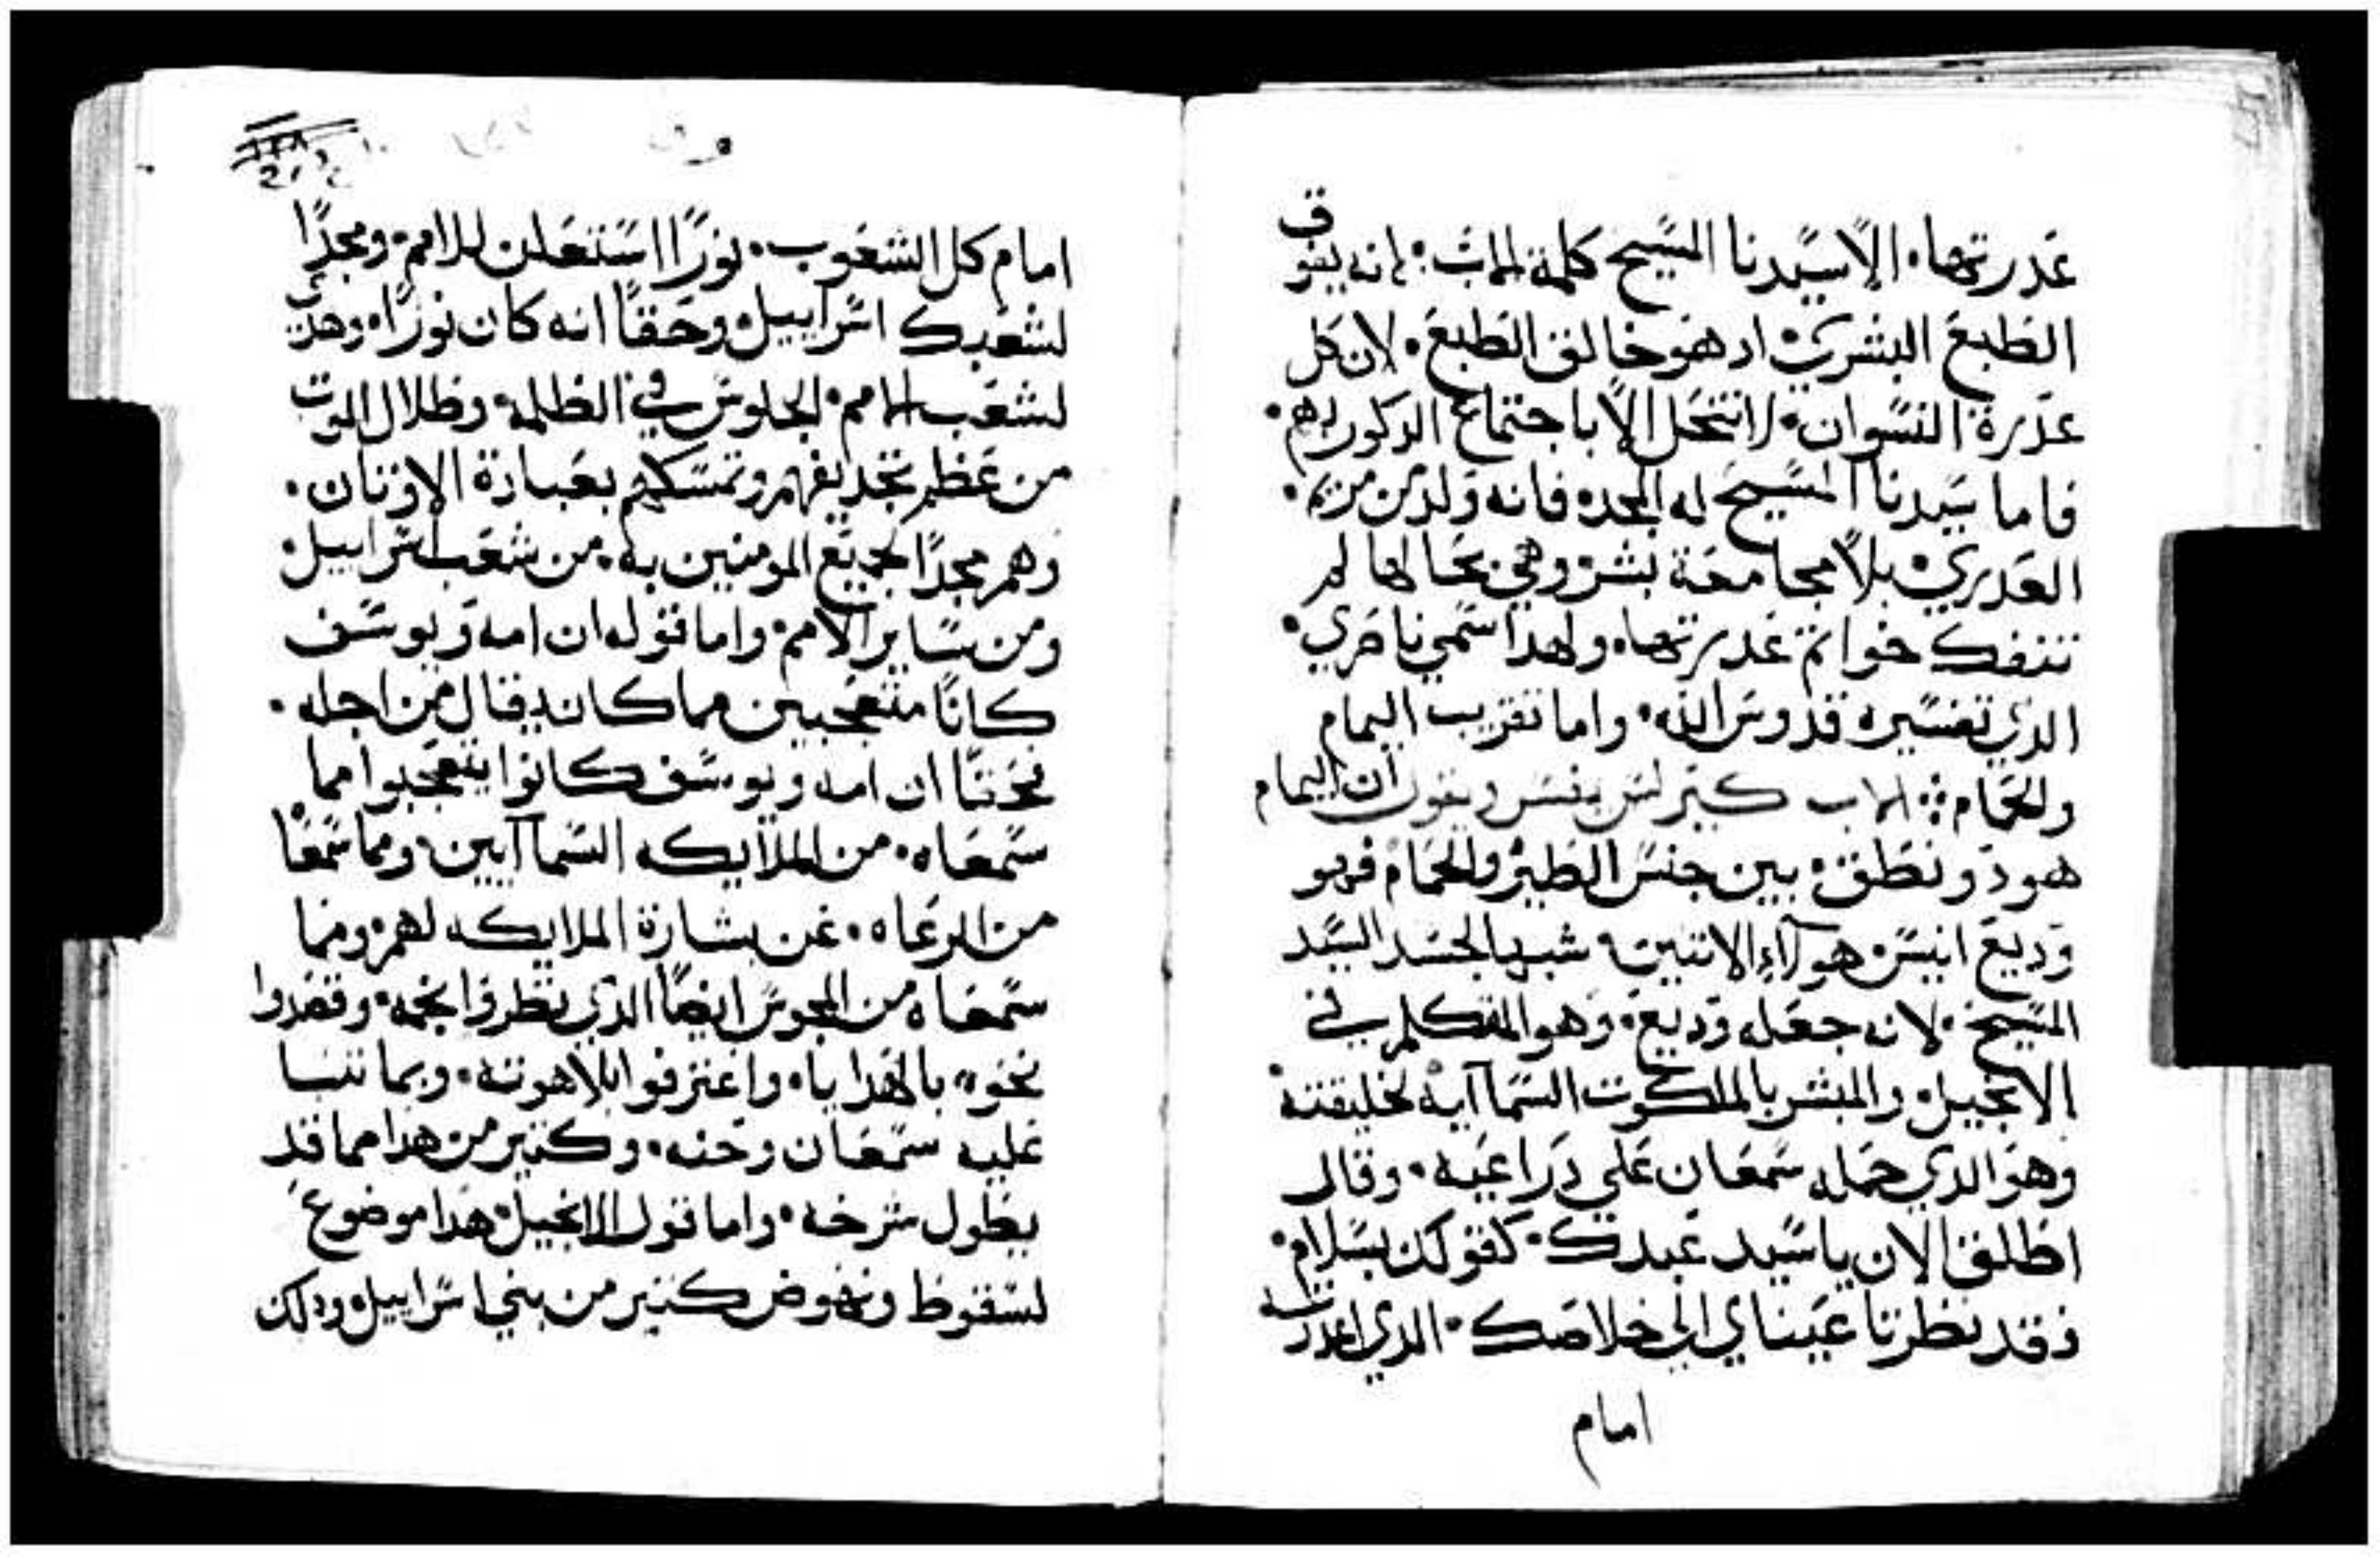 عدرتها. الا سيدنا المسيح كلمة الاب. انه يفوق
الطبع البشري. اد هو خالق الطبع. لان كل
عدرة النسوان. لا تنحل الا باجتماع الدكور لهم.
فاما سيدنا المسيح له المجد. فانه ولد من مريم.
العدري. بلا مجامعة بشر. وهي بحالها لم
تنفك خواتم عدرتها. ولهدا سمي ناصري.
الدي تفسيره قدوس الله. واما تقريب اليمام
والحمام: الاب كيرلس يفسر ويقول ان اليمام
هو دو نطق. بين جنس الطير. والحمام فهو
وديع انيس. هوآاء الاتنين. شبها لجسد السيد
المسيح. لانه جعله وديع. وهو المتكلم في
الانجيل. والمبشر بالملكوت السماآيه لخليقته.
وهو الدي حمله سمعان علي دراعيه. وقال
اطلق الان يا سيد عبدك. كقولك بسلام.
فقد نظرتا عيناي الي خلاصك. الدي اعددته
امام
امام كل الشعوب. نورًا استعلن للامم. ومجدًا
لشعبك اسراييل. وحقًا انه كان نورًا. وهدي
لشعب الامم. الجلوس في الظلمة. وظلال الموت
من عظم تجديفهم وتمسكهم بعبادة الاوتان.
وهم مجدًا لجميع المومنين به. من شعب اسراييل.
ومن ساير الامم. واما قوله ان امه ويوسف
كانا متعجبين مما كان يقال من اجله.
ان امه ويوسف كانوا يتعجبوا مما
سمعاه. من الملايكه السماآيين. ومما سمعا
من الرعاه. عن بشارة الملايكه لهم. ومما
سمعاه من المجوس ايضًا الدي نظروا نجمه. وقصدوا
نحوه بالهدايا. واعترفوا بلاهوته. وبما تنبا
عليه سمعان وحنه. وكتير من هدا مما قد
يطول شرحه. واما قول الانجيل. هدا موضوع
لسقوط ونهوض كتير من بني اسراييل. ودلك